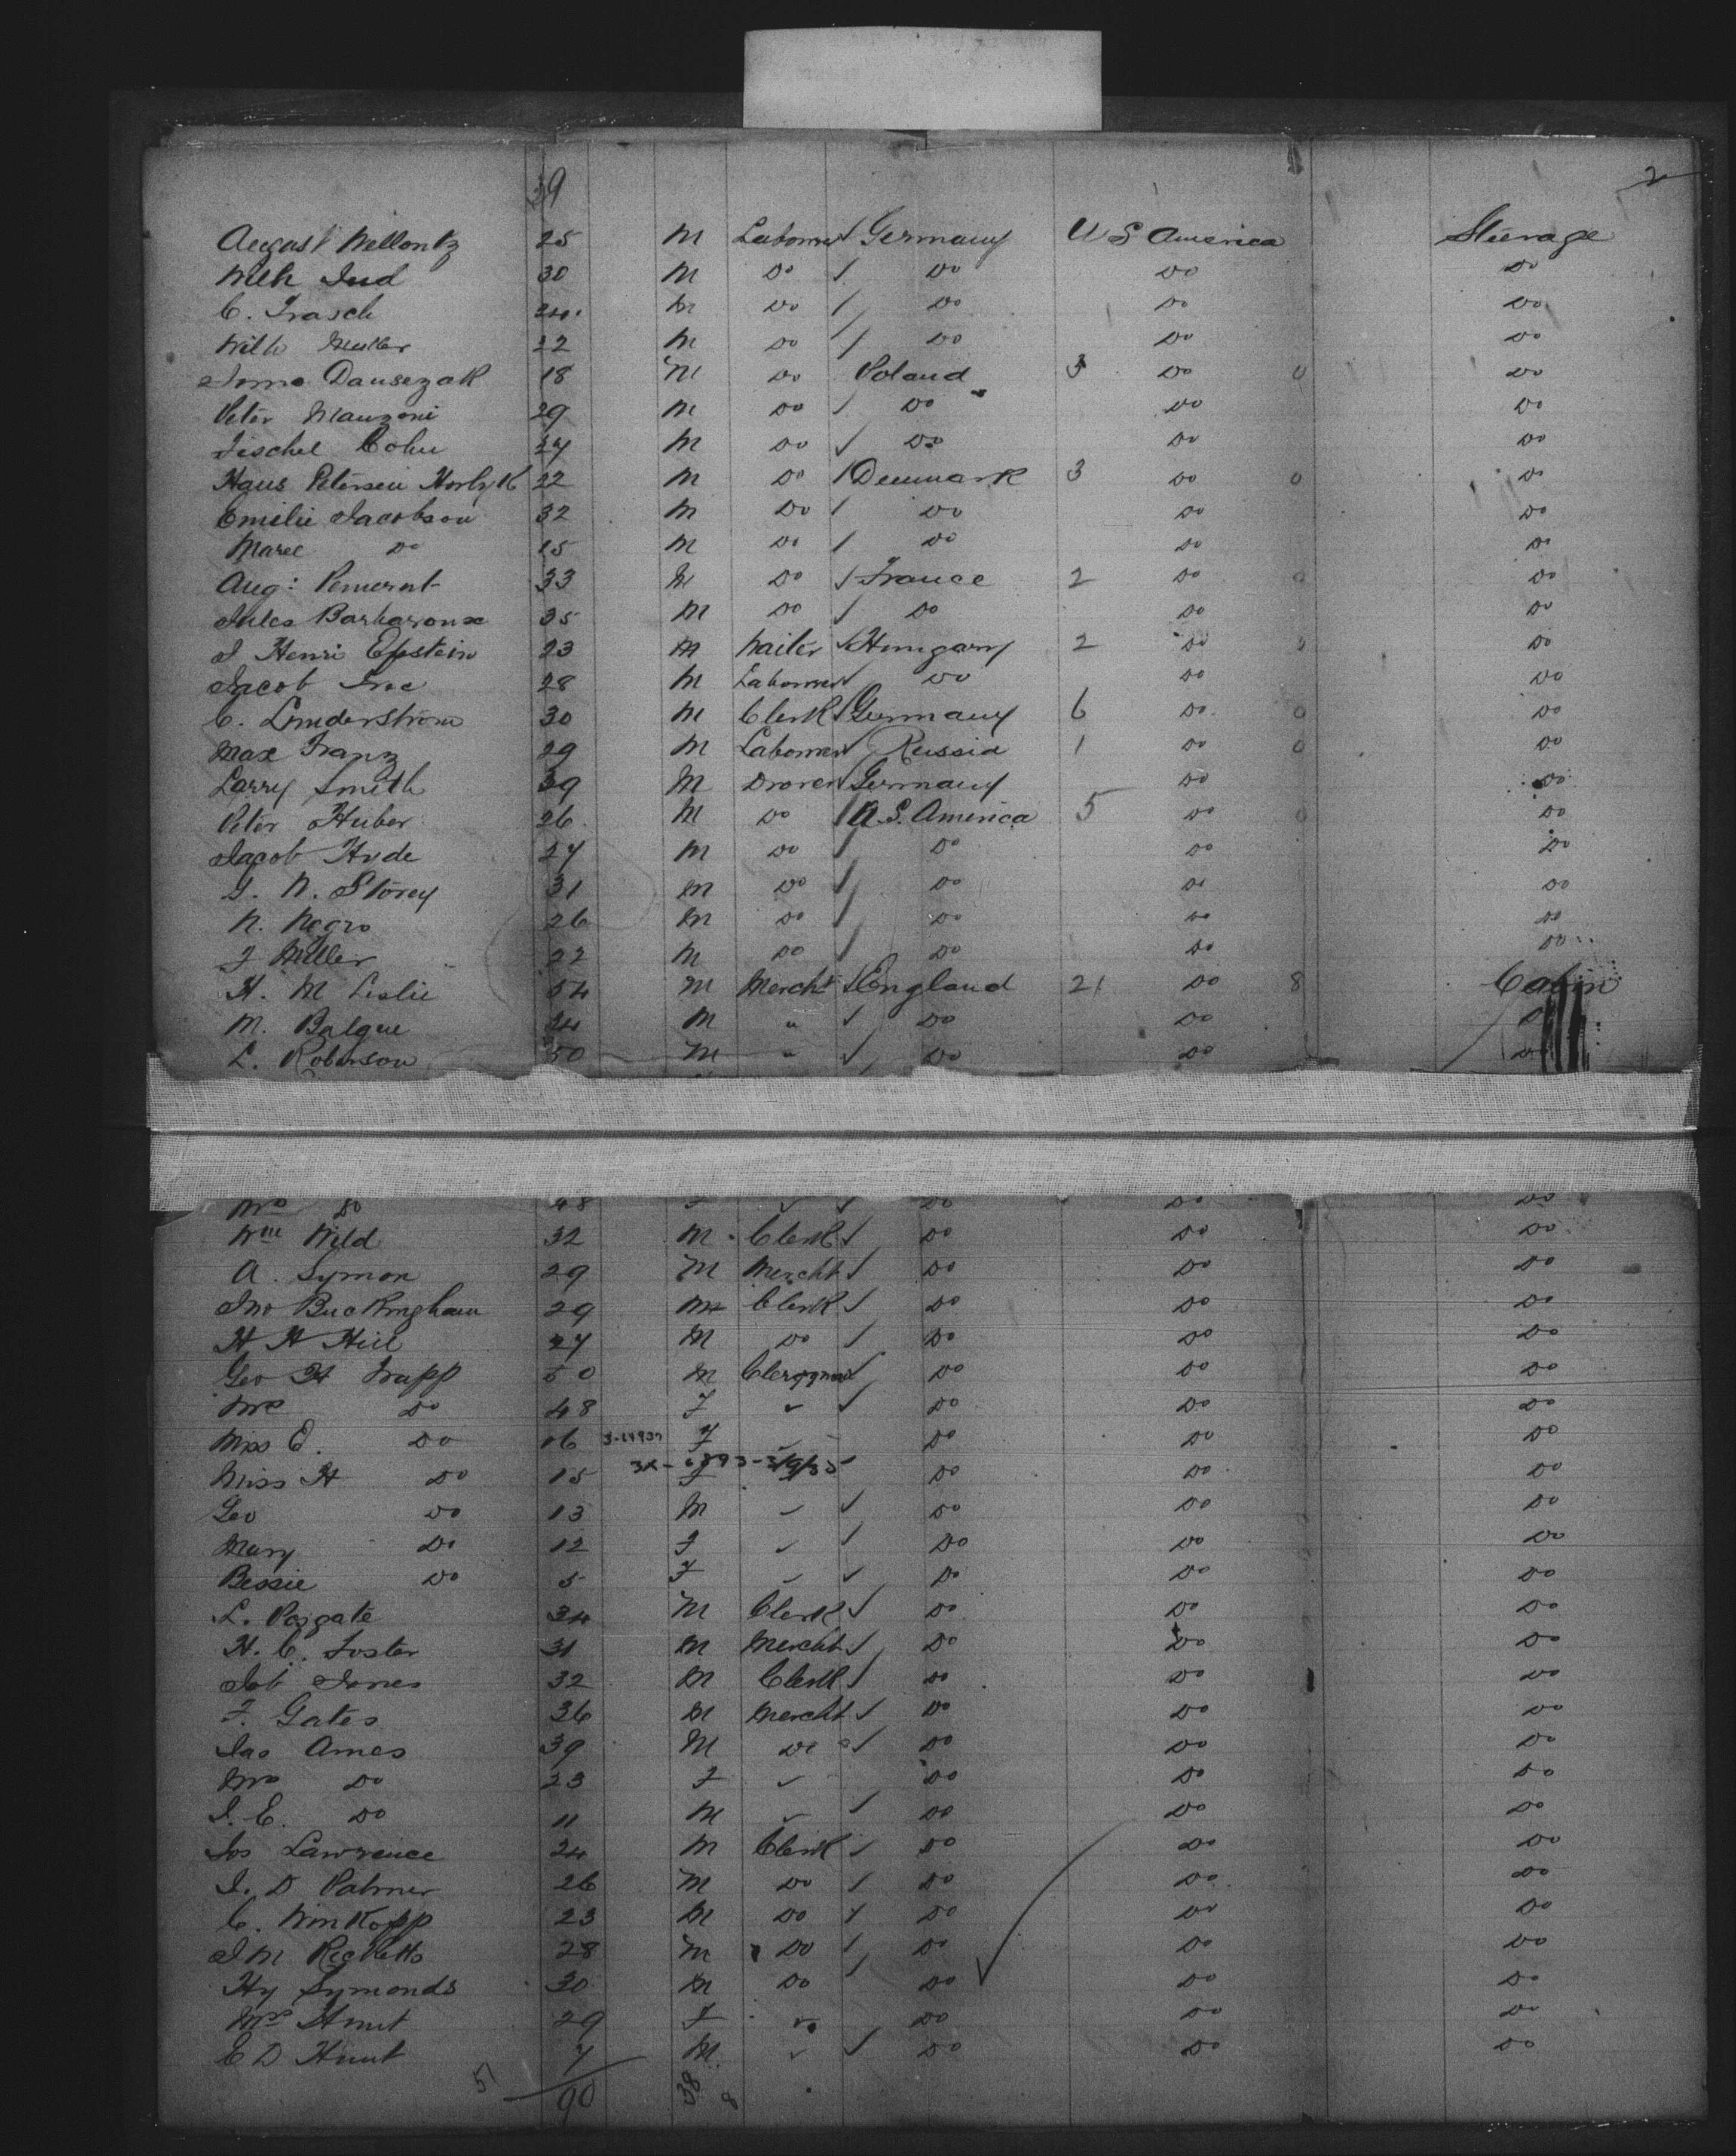 39 2
August Mellontz 25 M Labourer Germany U S America Steerage
Wilh 30 M Do Do Do Do
C. Frasch 24 M Do Do Do Do
Wilh Muller 22 M Do Do Do Do
Dausezak 18 M Do Poland 3 Do 0 Do
Peter Manzoni 29 M Do Do Do Do
Fischel Cohn 27 M Do Do Do Do
Hans Petersen 22 M Do Denmark 3 Do 0 Do
Emilie Jacobson 32 M Do Do Do Do
Do 15 M Do Do Do Do
Aug: 33 M Do France 2 Do 0 Do
Jules Barbaroux 35 M Do Do Do Do
J Henri Epstein 23 M Waiter Hungary 2 Do 0 Do
Jacob 28 M Labourer Do Do Do
C. 30 M Clerk Germany 6 Do 0 Do
Max Franz 29 M Labourer Russia 1 Do 0 Do
Larry Smith 39 M Drover Germany Do Do
Peter Huber 26 M Do U.S. America 5 Do 0 Do
Jacob Hyde 27 M Do Do Do Do
G. N. Storey 31 M Do Do Do Do
N. Negro 26 M Do Do Do Do
F Miller 22 M Do Do Do Do
H. M Leslie 54 M Mercht England 21 Do 8 Cabin
M. Balgue 24 M " Do Do Do
L. Roberson 50 M " Do Do Do
Mrs Do 48 F Do Do Do
Wm Wild 32 M Clerk Do Do Do
A. Symon 29 M Mercht Do Do Do
Jno Buckingham 29 M Clerk Do Do Do
H H Hill 27 M Do Do Do Do
Geo H Trapp 50 M Clergyman Do Do Do
Mrs Do 48 F Do Do Do
Miss E. Do 16 F Do Do Do
Miss H Do 15 F Do Do Do
Geo Do 13 M Do Do Do
Mary Do 12 F Do Do Do
Bessie Do 5 F Do Do Do
L. Posgate 34 M Clerk Do Do Do
H. C. Foster 31 M Mercht Do Do Do
Job Jones 32 M Clerk Do Do Do
F. Gates 36 M Mercht Do Do Do
Jas Ames 39 M Do Do Do Do
Mrs Do 23 F Do Do Do
J. E. Do 11 M Do Do Do
Jos Lawrence 24 M Clerk Do Do Do
J. D Palmer 26 M Do Do Do Do
C. Winkopp 23 M Do Do Do Do
J M Ricketts 28 M Do Do Do Do
Hy Symonds 30 M Do Do Do Do
Mrs Hunt 29 F Do Do Do
E D Hunt 7 M Do Do Do
51 90 38 8